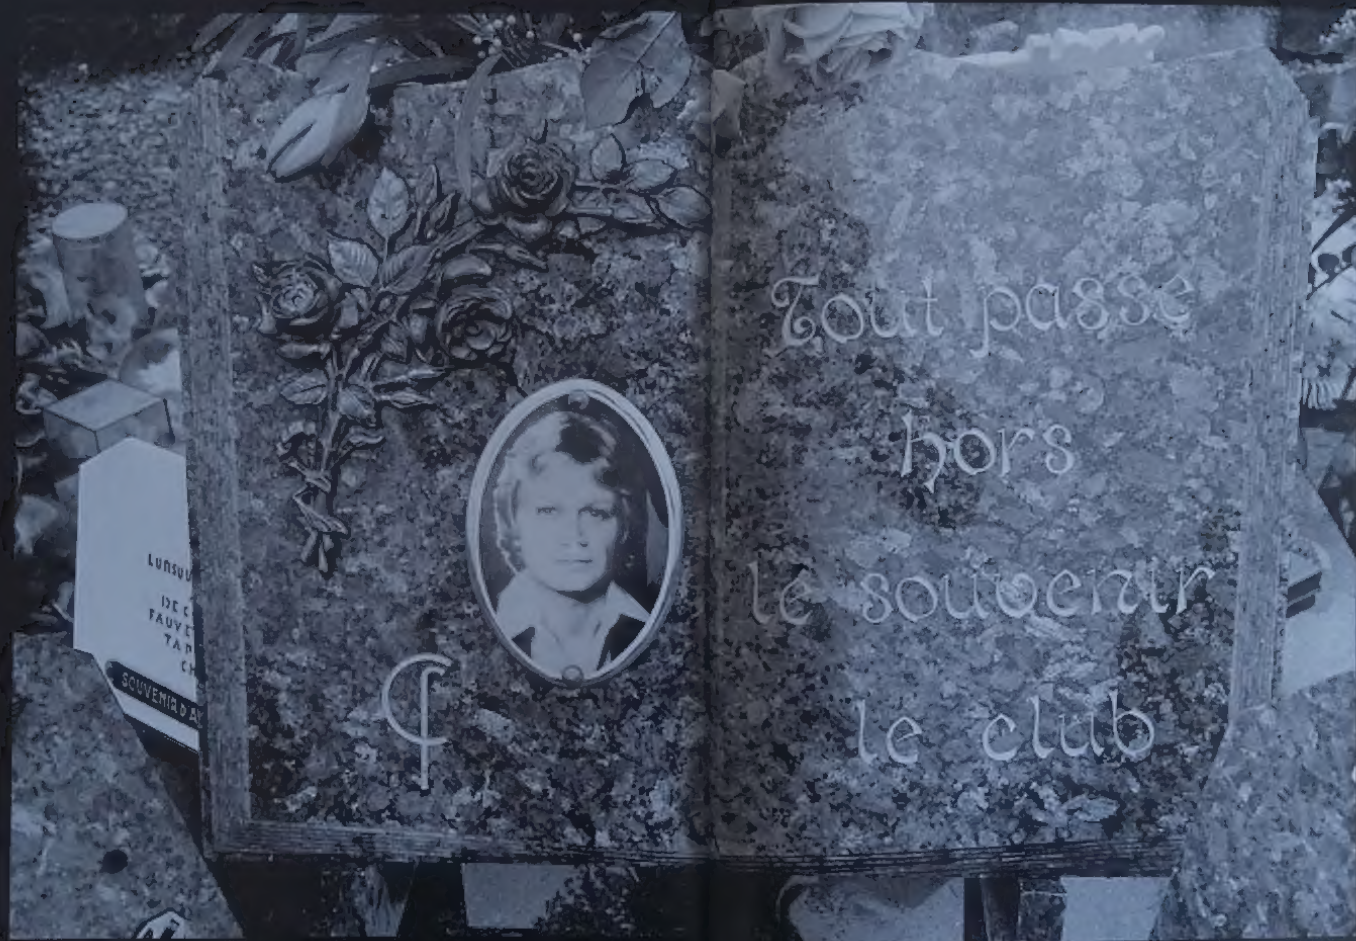 Tout passe
hors
le souvenir
le club
CF
DE C
FAUVE
TAP
CH
SOUVENIR D'A